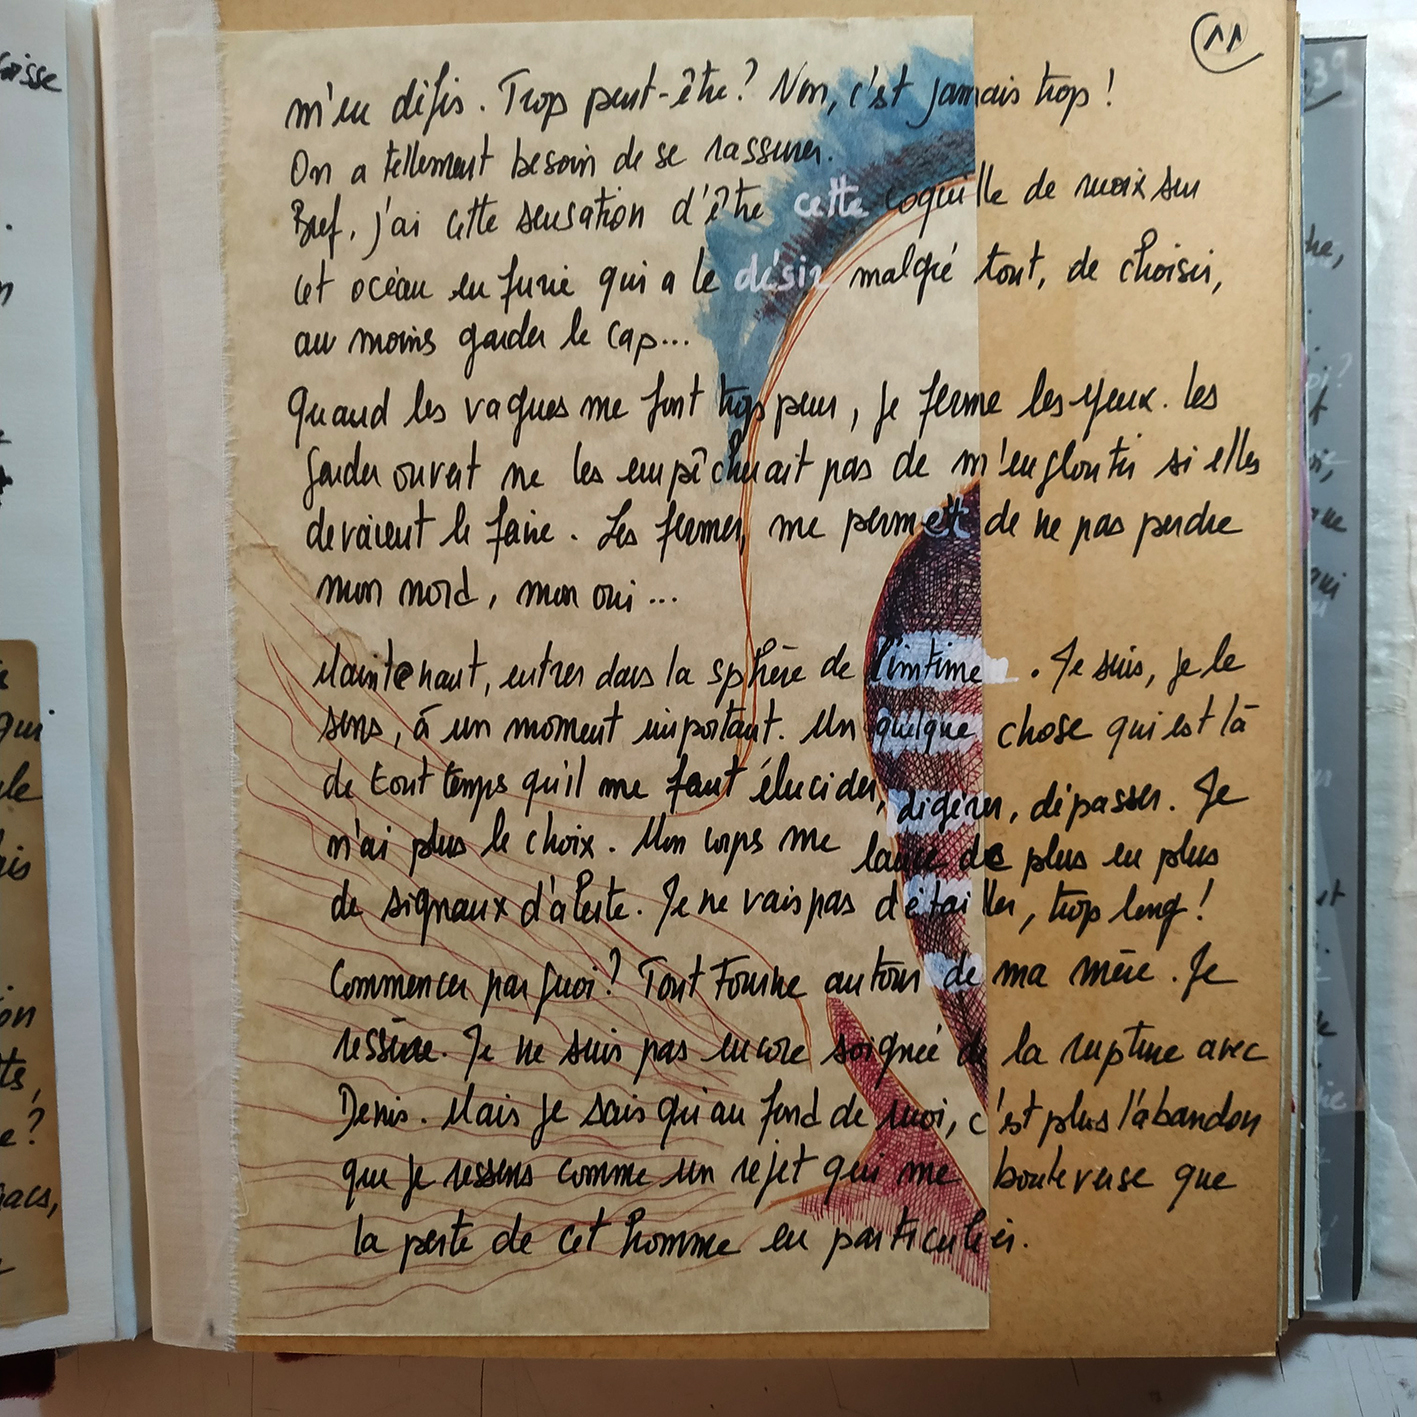 11
m'en défis. Trop peut-être? Non, c'est jamais trop!
On a tellement besoin de se rassurer.
Bref, j'ai cette sensation d'être cette coquille de noix sur
cet océan en furie qui a le désir malgré tout, de choisir,
au moins garder le cap...
Quand les vagues me font trop peur, je ferme les yeux. Les
garder ouvert ne les empêcherait pas de m'engloutir si elles
devaient le faire. Les fermer, me permet de ne pas perdre
mon nord, mon oui...
Maintenant, entrer dans la sphère de l'intime. Je suis, je le
sens, à un moment important. Un quelque chose qui est là
de tout temps qu'il me faut élucider, digérer, dépasser. Je
n'ai plus le choix. Mon corps me lance de plus en plus
de signaux d'alerte. Je ne vais pas détailler, trop long!
Commencer par quoi? Tout tourne autour de ma mère. Je
ressasse. Je ne suis pas encore soignée de la rupture avec
Denis. Mais je sais qu'au fond de moi, c'est plus l'abandon
que je ressens comme un rejet qui me bouleverse que
la perte de cet homme en particulier.